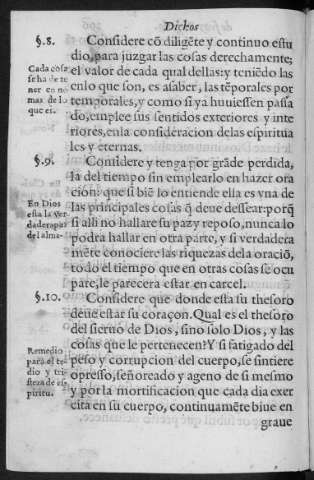 Dichos
§.8. Considere cõ diligẽte y continuo estu
dio, para juzgar las cosas derechamente;
Cada cosa
se ha de te
ner en no
mas de lo
que es.
el valor de cada qual dellas: y teniẽdo las
en lo que son, es asaber, las tẽporales por
temporales, y como si ya huuiessen passa
do, emplee sus sentidos exteriores y inte
riores, en la consideracion de las espiritua
les y eternas.
§.9. Considere y tenga por grãde perdida,
la del tiempo sin emplearlo en hazer ora
cion: que si biẽ lo entiende ella es vna de
En Dios
esta la ver
dadera paz
del alma.
las principales cosas q̃ deue dessear: porq̃
si alli no hallare su paz y reposo, nunca lo
podra hallar en otra parte, y si verdadera
mẽte conociere las riquezas de la oraciõ,
todo el tiempo que en otras cosas se ocu
pare, le parecera estar en carcel.
§.10. Considere que donde esta su thesoro
deue estar su coraçon. Qual es el thesoro
del sieruo de Dios, sino solo Dios, y las
cosas que le pertenecen? Y si fatigado del
Remedio
para el te-
dio y tri-
steza de es-
piritu.
peso y corrupcion del cuerpo, se sintiere
opresso, señoreado y ageno de si mesmo
y por la mortificacion que cada dia exer
cita en su cuerpo, continuamẽte biue en
graue